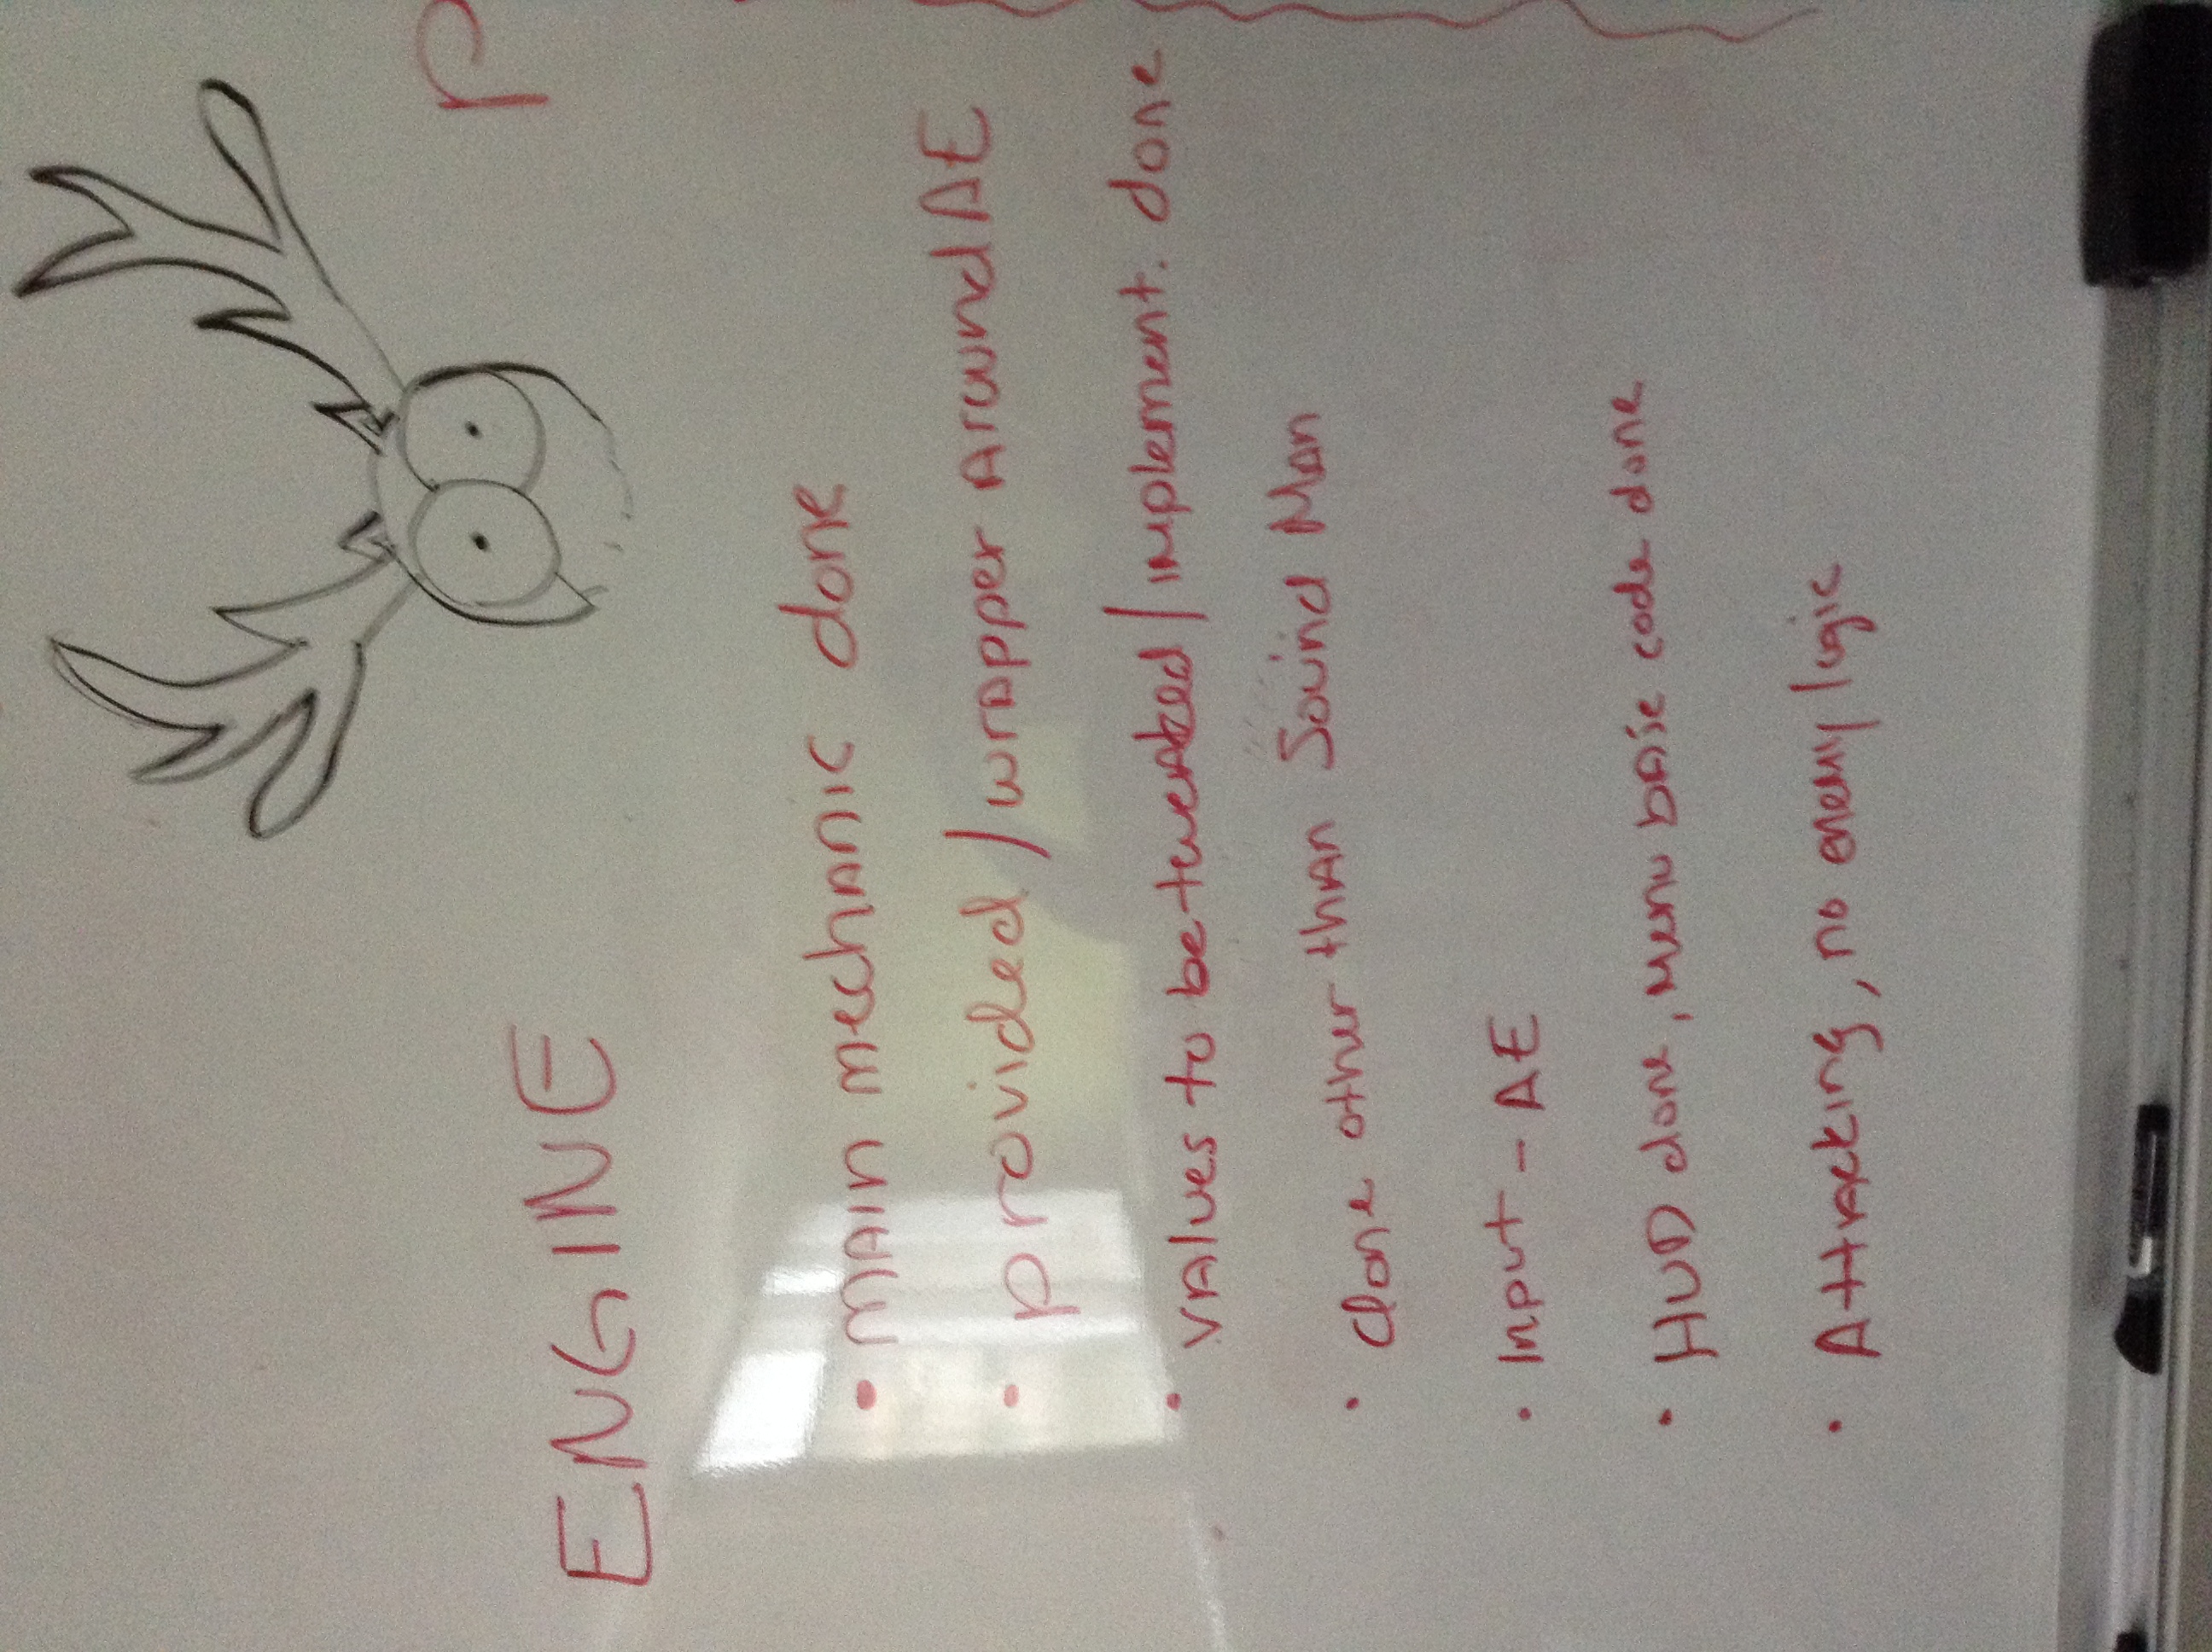 P
ENGINE
• MAIN mechanic done
• provided / wrapper around AE
• values to be tweaked / implement. done
• done other than Sound Man
• Input - AE
• HUD done, menu basic code done
• Attacking, no enemy logic